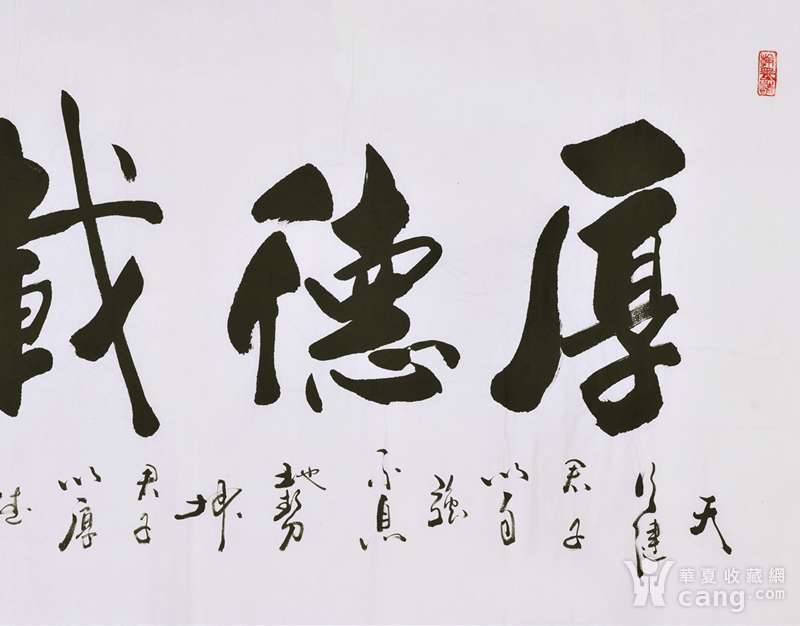 厚德載
天
行健
君子
以自
強
不息
地勢
坤
君子
以厚
德
華夏收藏網
cang.com